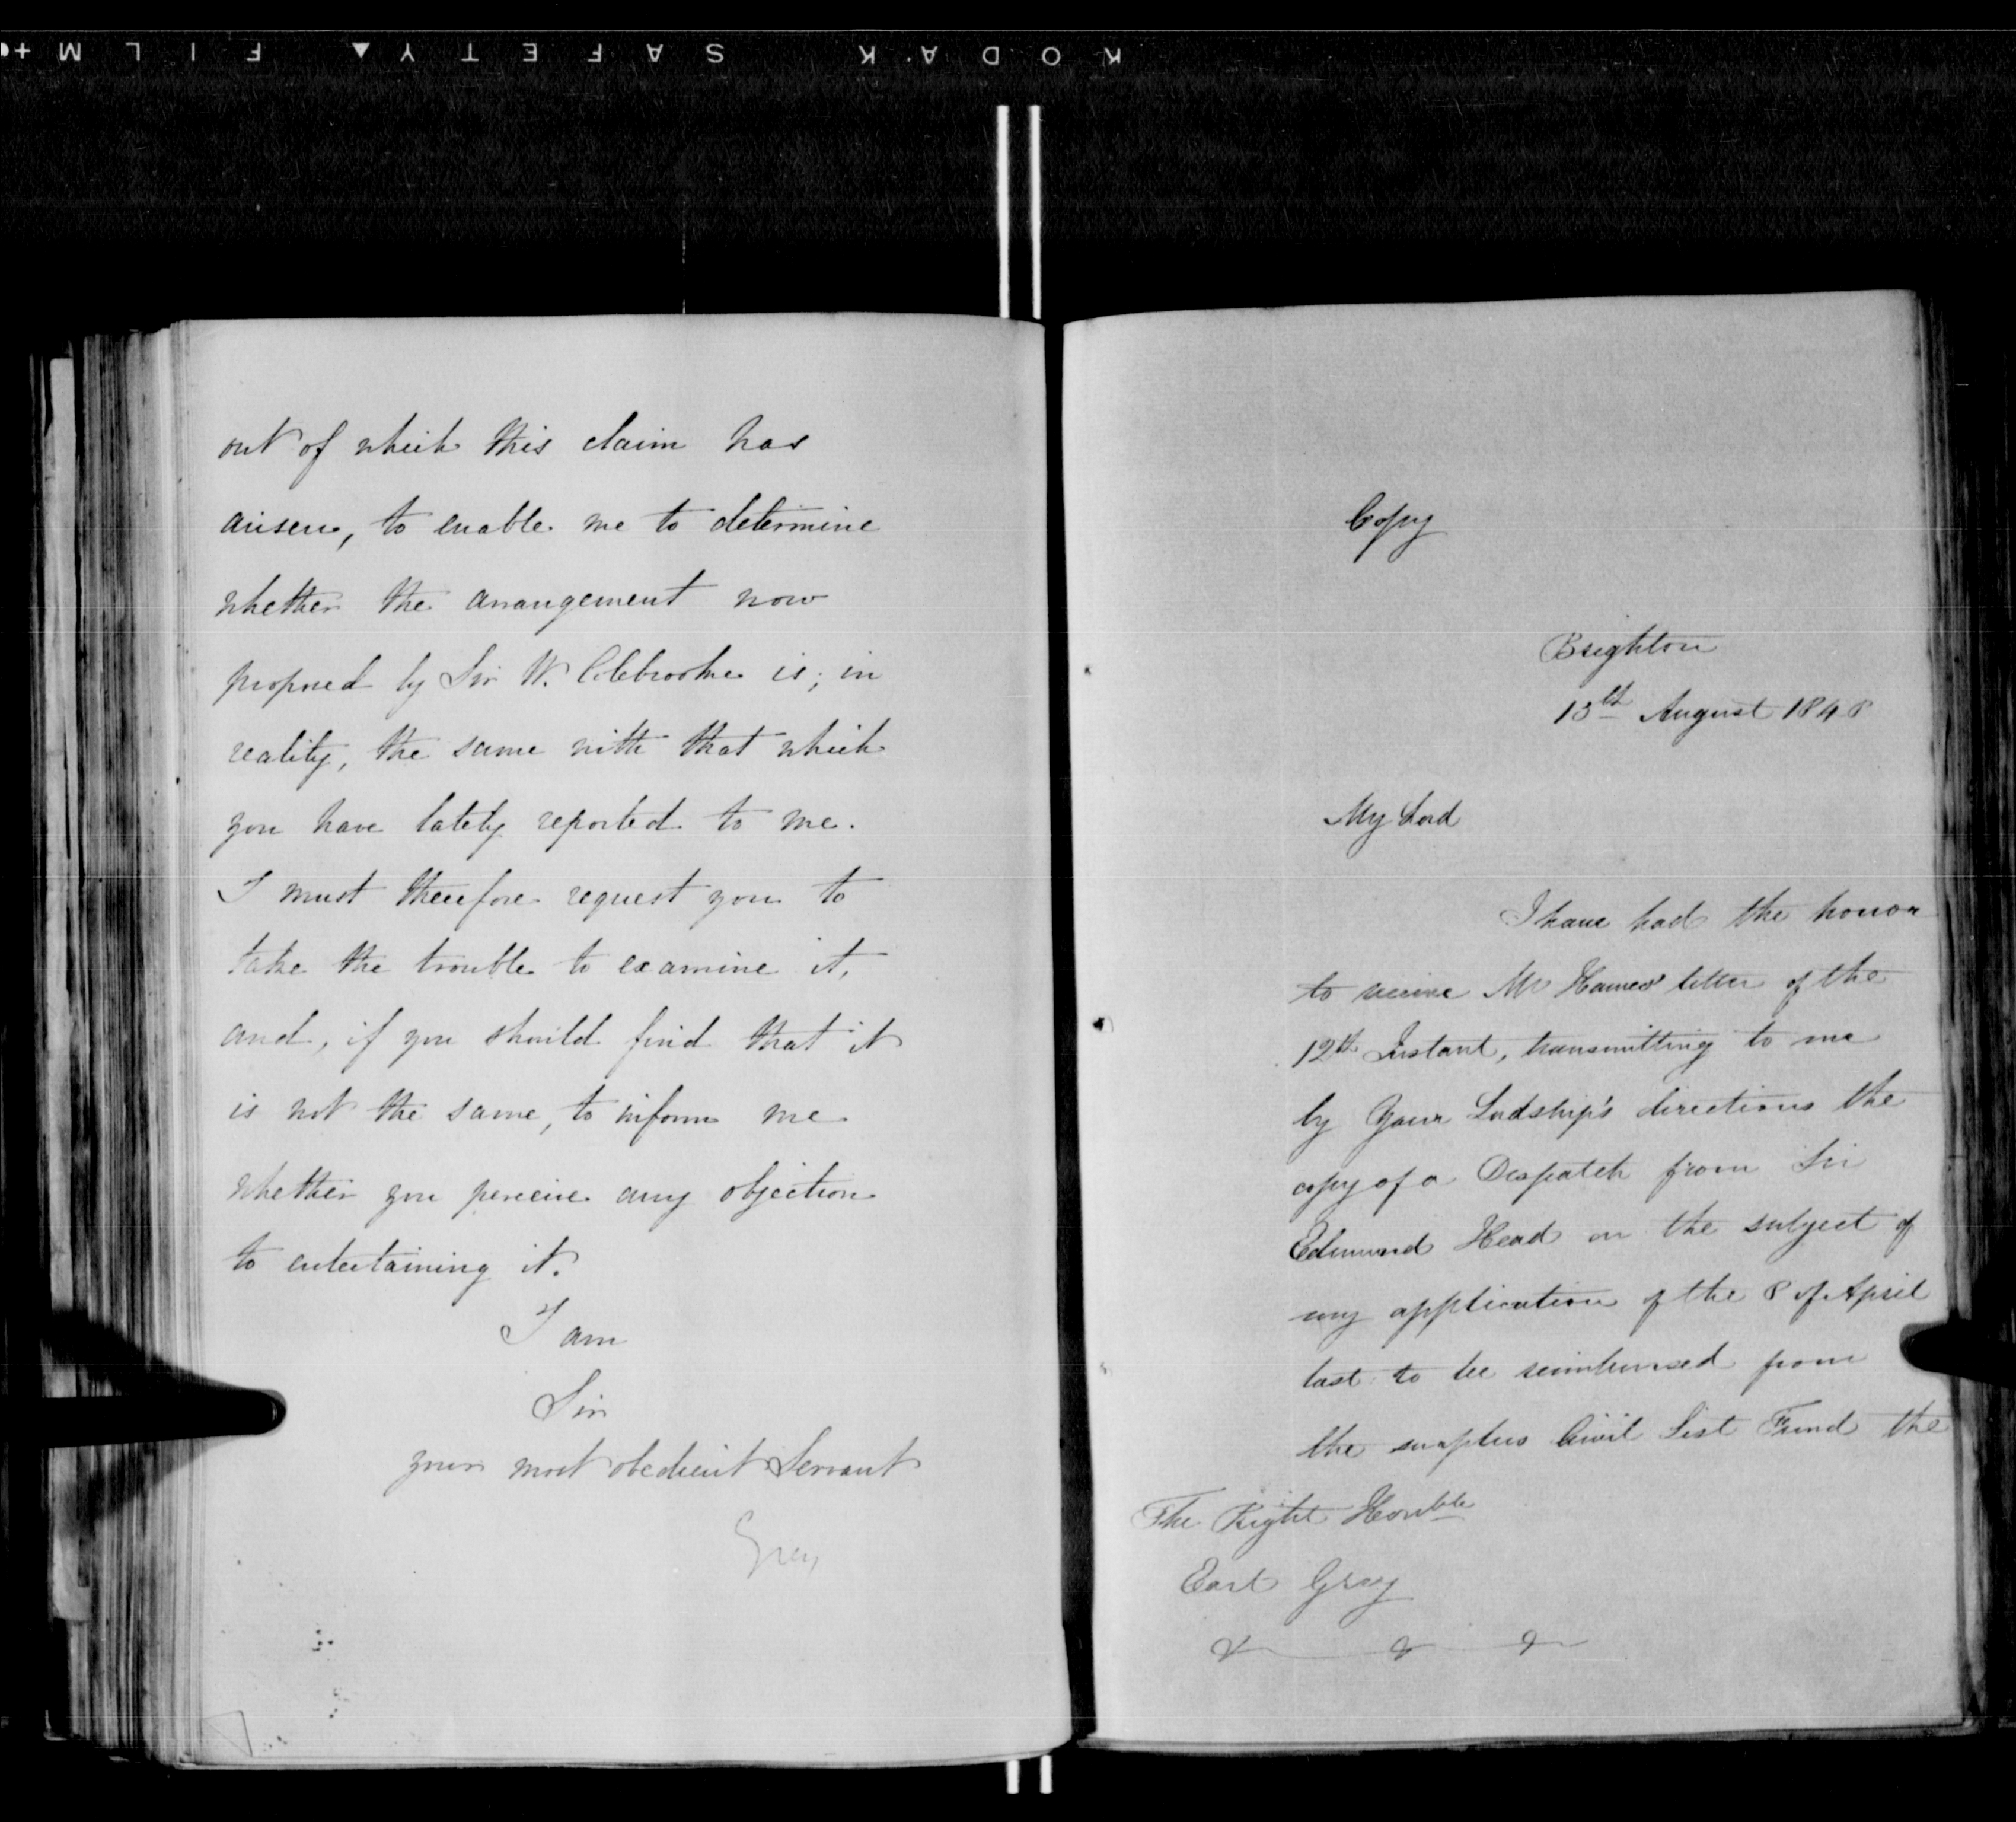 KODAK SAFETY FILM
out of which this claim has
arisen, to enable me to determine
whether the arrangement now
proposed by Sir W. Colebrooke is; in
reality, the same with that which
you have lately reported to me.
I must therefore request you to
take the trouble to examine it,
and, if you should find that it
is not the same, to inform me
whether you perceive any objection
to entertaining it.
I am
Sir
your most obedient Servant
Grey
Copy
Brighton
August 1848
My Lord
I have had the honor
to receive Mr Hawes' letter of the
12th Instant, transmitting to me
by Your Lordship's directions the
copy of a Despatch from Sir
Edmund Head on the subject of
my application of the 8 of April
last to be reimbursed from
the surplus Civil List Fund the
The Right Honble
Earl Grey